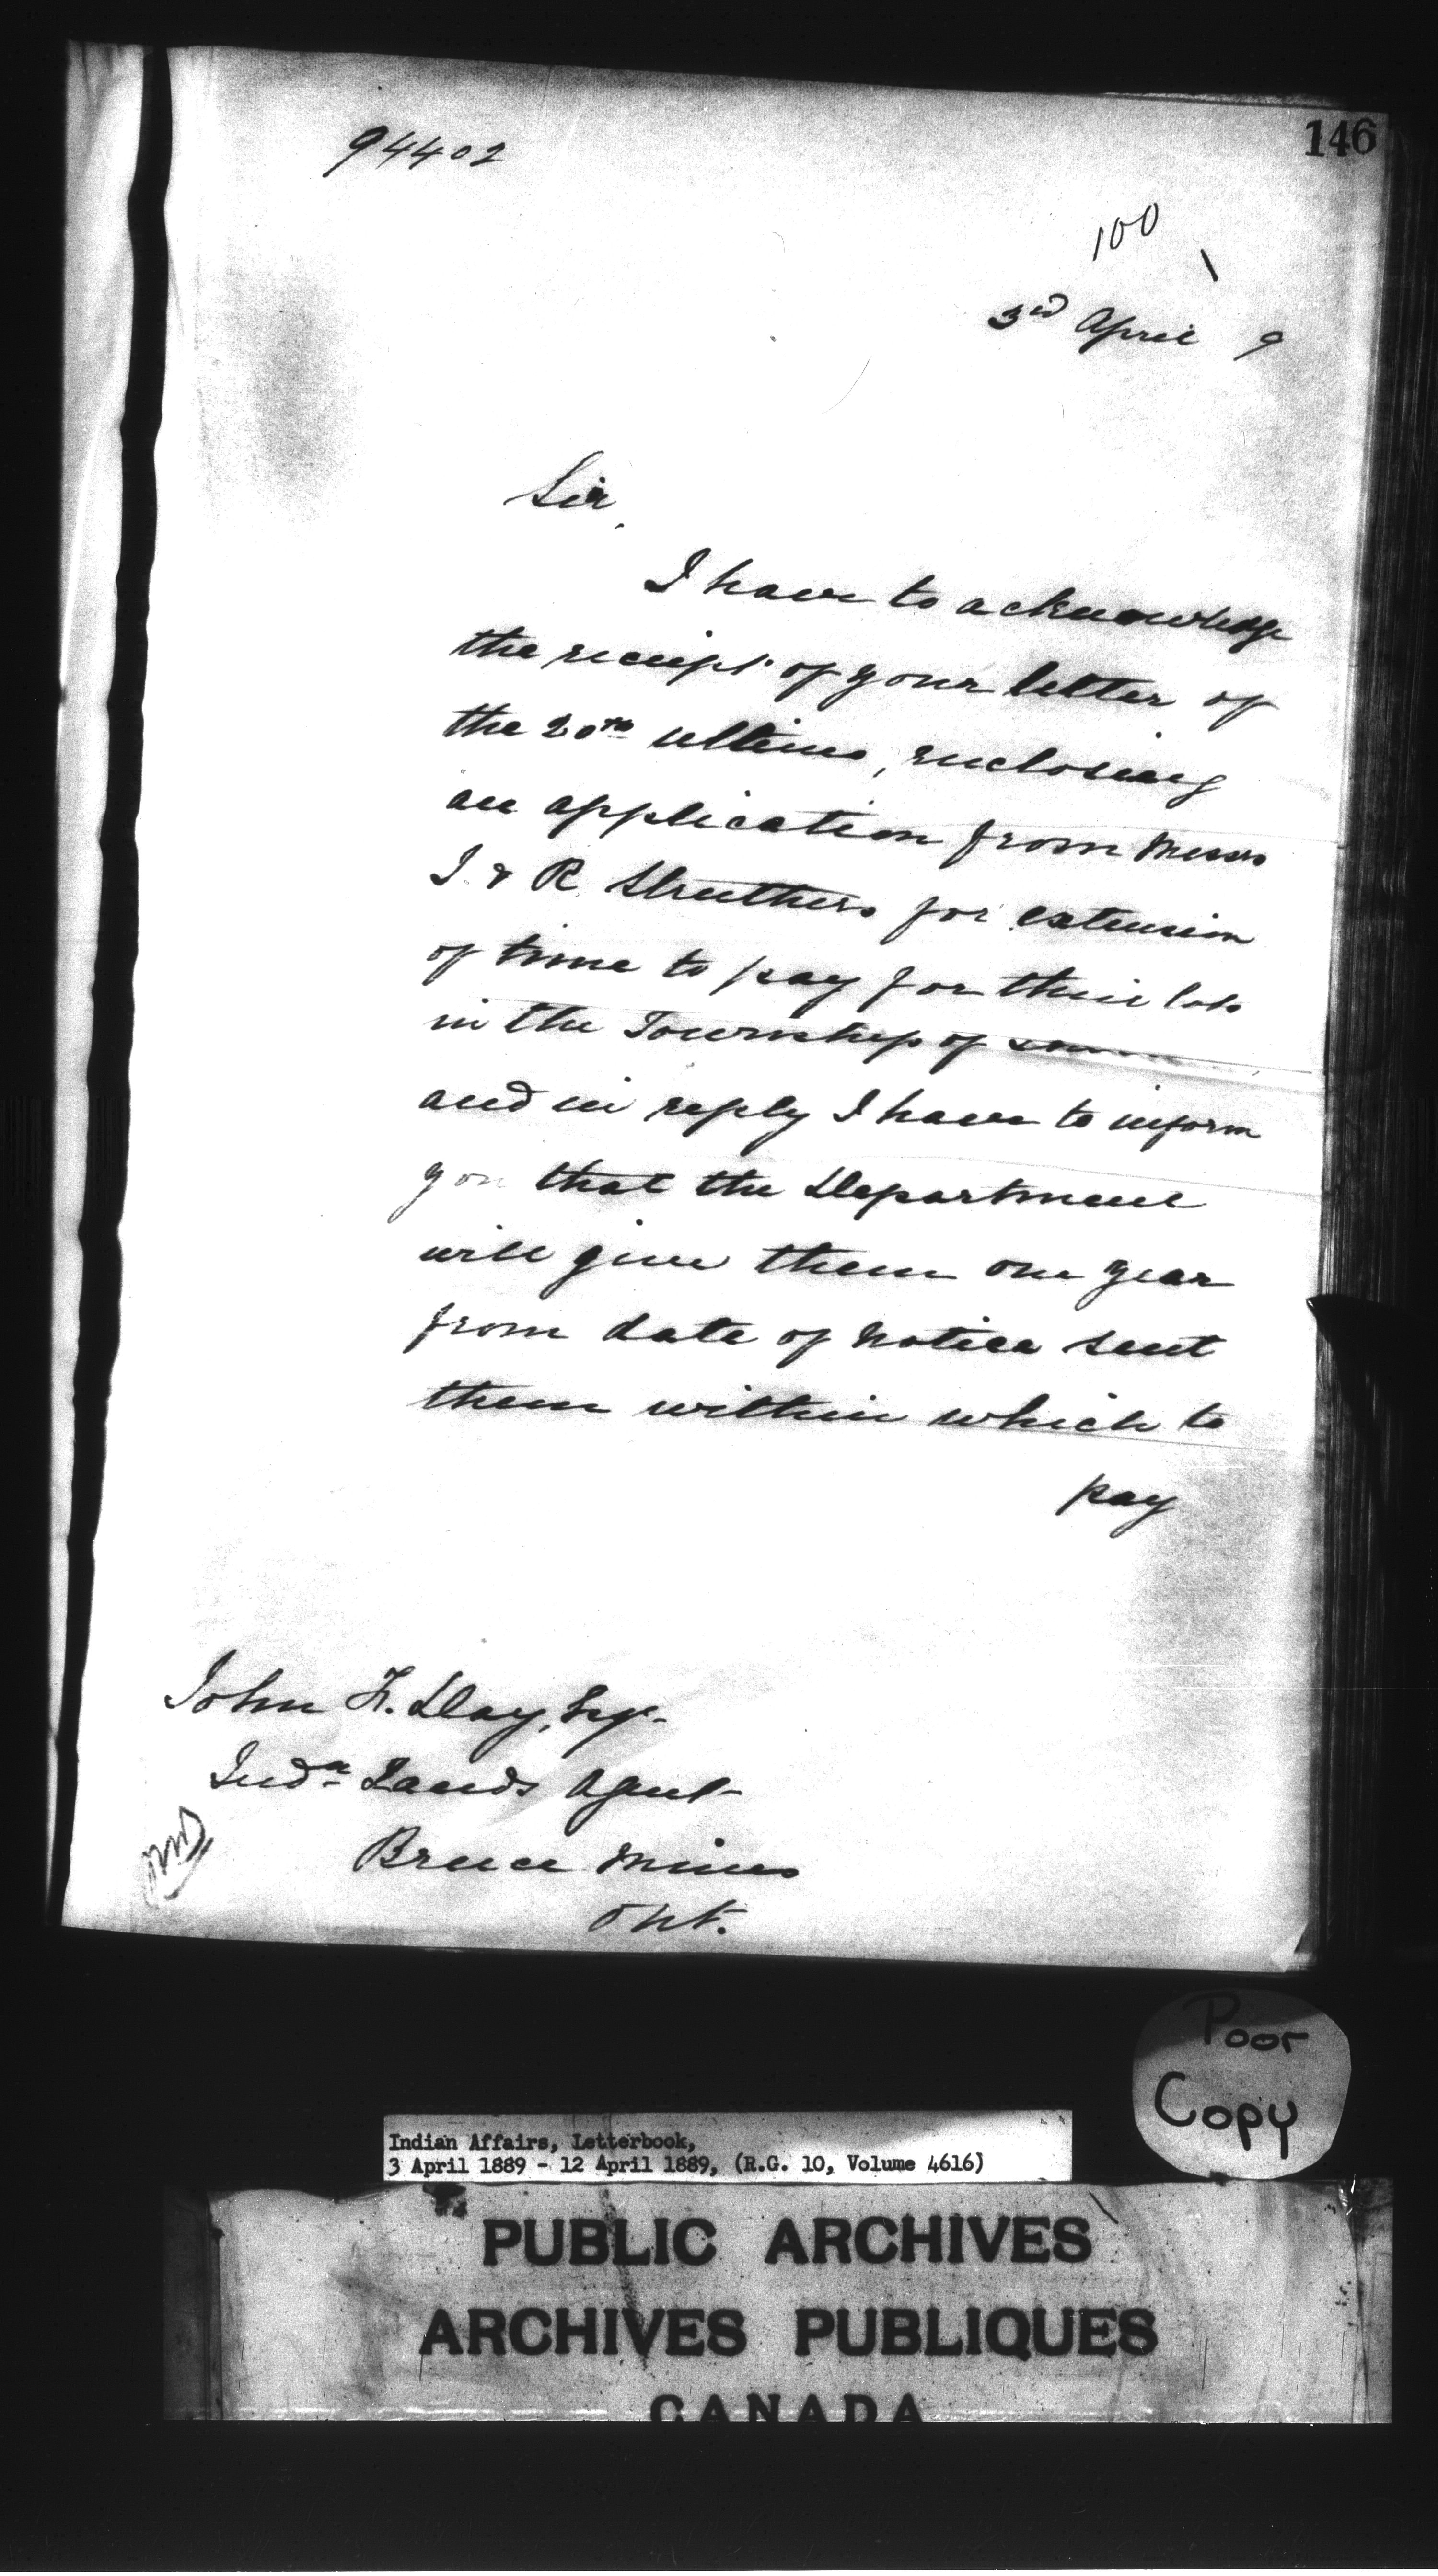 146
94402
100
3rd April 9
Sir,
I have to acknowledge
the receipt of your letter of
the 20th ultimo, enclosing
an application from Messrs
J. & R. Struthers for extension
of time to pay for their lots
in the Township of
and in reply I have to inform
you that the Department
will give them one year
from date of notice sent
them within which to
pay
John F. Day, Esq.
Indn Lands Agent
Bruce Mines
Ont.
Poor
Copy
Indian Affairs, Letterbook,
3 April 1889 - 12 April 1889, (R.G. 10, Volume 4616)
PUBLIC ARCHIVES
ARCHIVES PUBLIQUES
CANADA